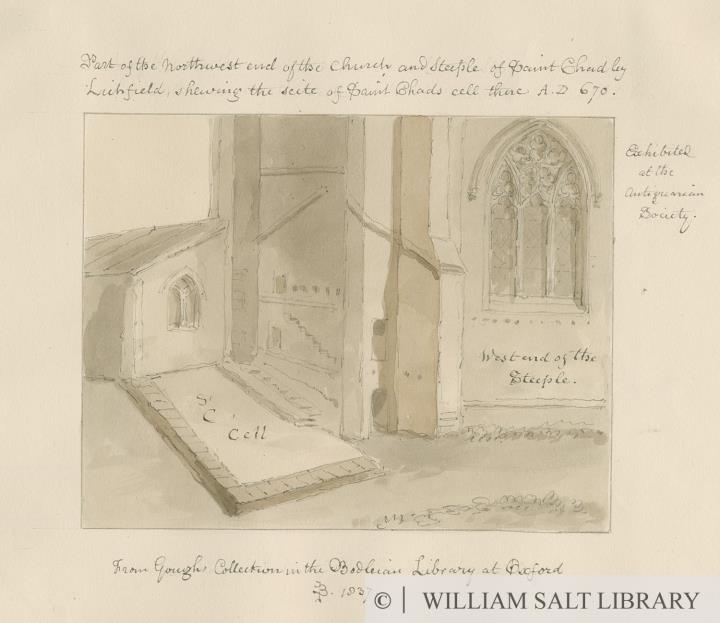 Part of the Northwest end of the Church and Steeple of Saint Chad by
Lichfield, shewing the scite of Saint Chads cell there A.D 670.
Exhibited
at the
Antiquarian
Society.
West end of the
Steeple.
St C
Cell
From Goughs Collection in the Bodleian Library at Oxford
1837
© | WILLIAM SALT LIBRARY